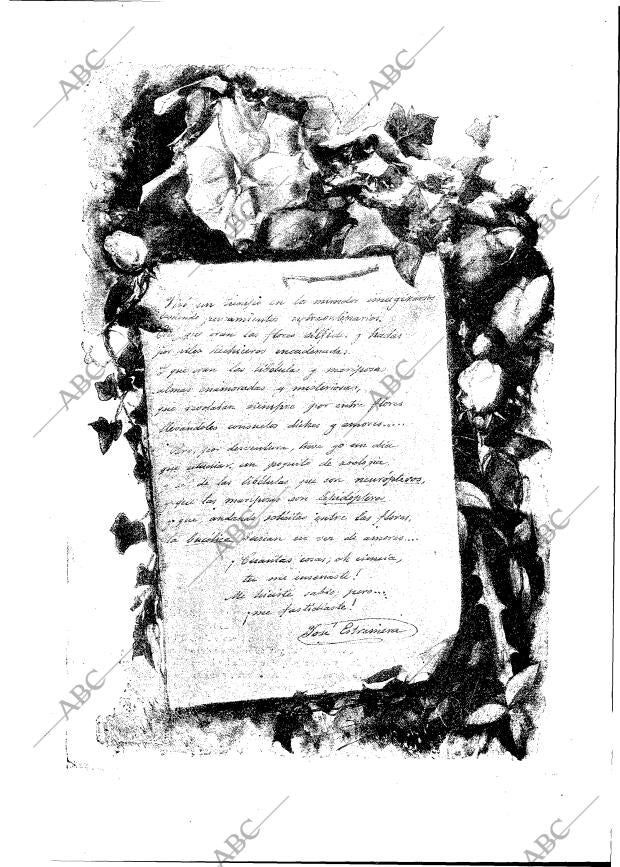 Viví un tiempo en la mundo imaginario
teniendo pensamientos extraordinarios
que eran las flores sílfides y hadas
por ellas hechiceros encadenadas;
Y que eran las libélulas y mariposas
almas enamoradas y misteriosas,
que revolaban siempre por entre flores
llevándoles consuelos dichas y amores.....
Pero, por desventura, tuve yo un día
que estudiar, un poquito de zoología
de las libélulas que son neurópteros,
y que las mariposas son lepidópteros
y que andando solícitas entre las flores,
la bucólica hacían en vez de amores....
¡Cuantas cosas, oh ciencia,
tu me enseñaste!
Me hiciste sabio, pero...
¡me fastidiaste!
José Estremera
ABC
ABC
ABC
ABC
ABC
ABC
ABC
ABC
ABC
ABC
ABC